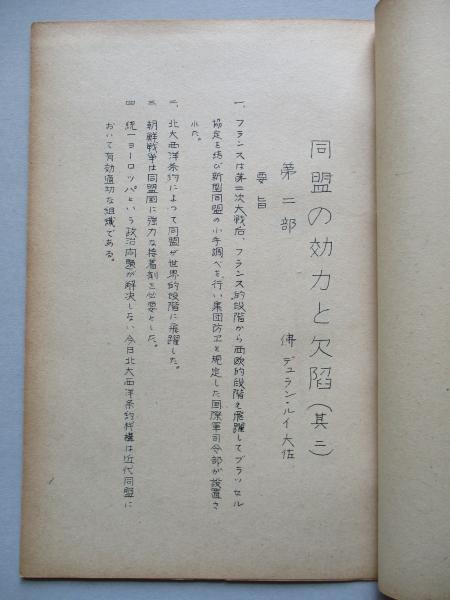 同盟の効力と欠陥（其二）
佛 デュラン・ルイ大佐
第二部
要旨
一、フランスは第二次大戦后、フランス的段階から西欧的段階を飛躍してブラッセル
協定を結び新型同盟の小手調べを行い集団防卫を規定した国際軍司令部が設置さ
れた。
二、北大西洋条約によって同盟が世界的段階に飛躍した。
三、朝鮮戦争は同盟国に強力な接着剤を必要とした。
四、統一ヨーロッパという政治问題が解決しない今日北大西洋条約機構は近代同盟に
おいて有効適切な組織である。